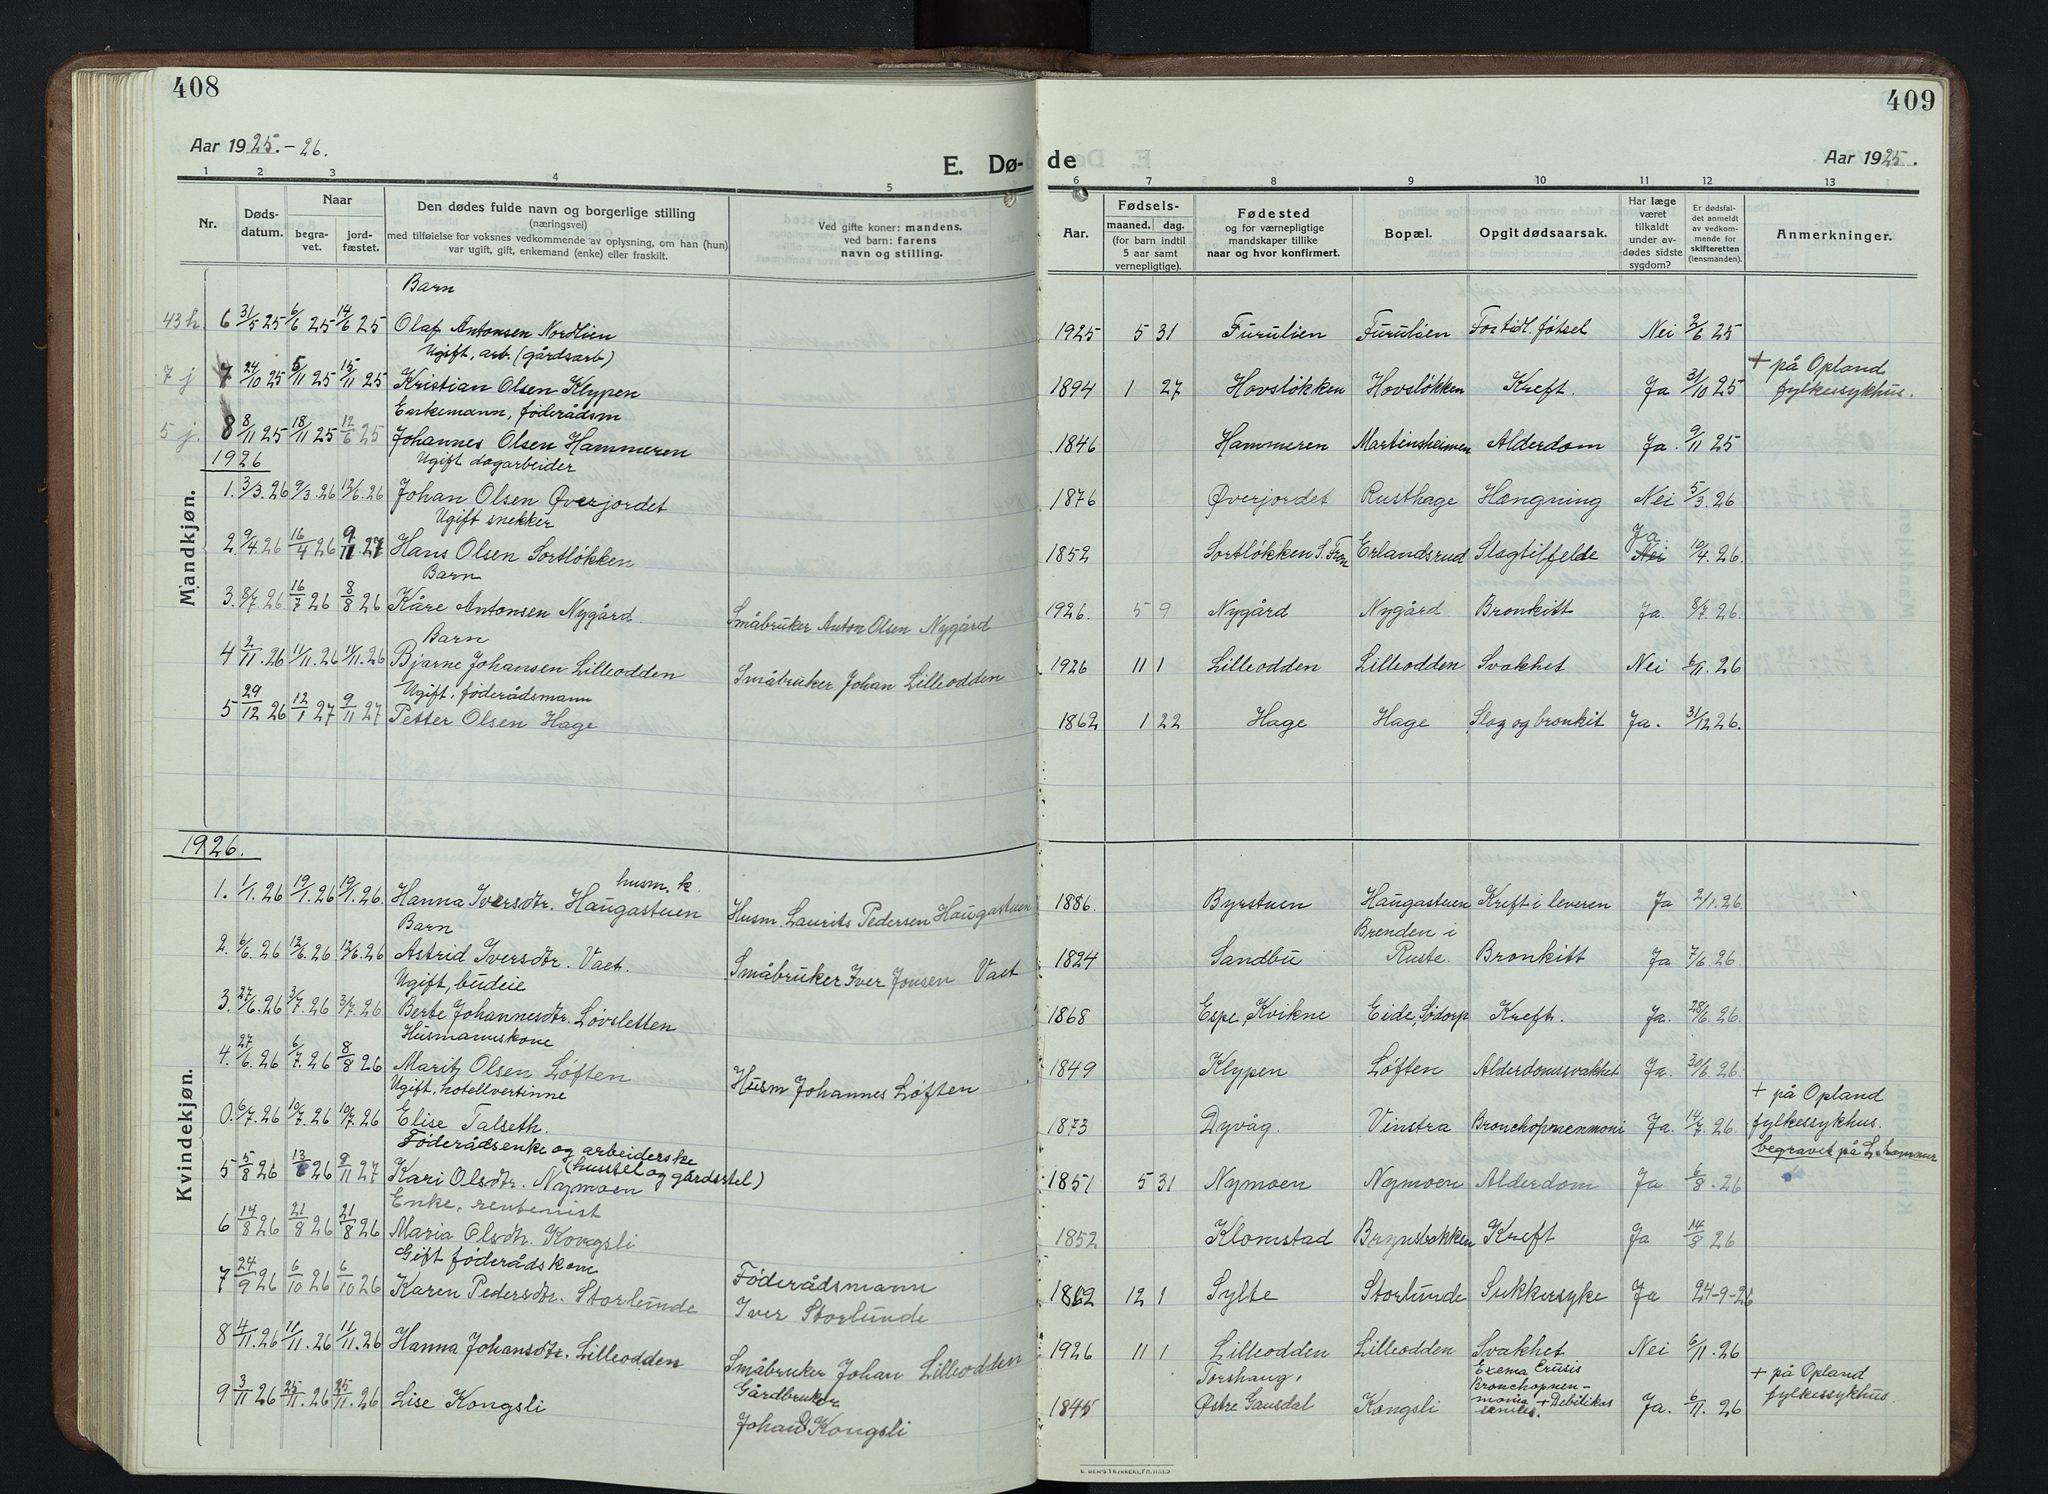 408
Aar 1925.-26.
E. Dø-
1 2 3 4 5
Nr.
Døds-
datum.
Naar
begra-
vet.
jord-
fæstet.
Den dødes fulde navn og borgerlige stilling
(næringsvei)
med tilføielse for voksnes vedkommende av oplysning, om han (hun)
var ugift, gift, enkemand (enke) eller fraskilt.
Ved gifte koner: mandens,
ved barn: farens
navn og stilling.
Mandkjøn.
Barn
6 31/5 25 6/6 25 14/6 25 Olaf Antonsen Nordlien
Ugift, arb. (gårdsarb)
7 j 7 24/10 25 5/11 25 15/11 25 Kristian Olsen Klypen
Enkemann, føderådsm
5 j. 8 8/11 25 18/11 25 12/6 25 Johannes Olsen Hammeren
1926 Ugift dagarbeider
1. 3/3.26 9/3.26 12/6.26 Johan Olsen Øverjordet
Ugift snekker
2. 9/4.26 16/4 26 9/11 27 Hans Olsen Sortløkken
Barn
3. 8/7.26 16/7 26 8/8 26 Kåre Antonsen Nygård. Småbruker Anton Olsen Nygård
Barn
4 2/11.26 11/11.26 11/11.26 Bjarne Johansen Lilleodden Småbruker Johan Lilleodden
Ugift, føderådsmann
5 29/12 26 12/1 27 9/11 27 Petter Olsen Hage
1926.
Kvindekjøn.
husm. k.
1. 1/1.26 19/1.26 19/1.26. Hanna Iversdtr. Haugastuen Husm. Laurits Pedersen Haugastuen
Barn
2. 6/6.26 12/6.26 12/6.26 Astrid Iversdtr. Vaet. Småbruker Iver Jonsen Vaet
Ugift, budeie
3. 27/6.26 3/7.26 3/7.26 Berte Johannesdtr. Løvsletten
Husmannskone
4. 27/6.26 6/7.26 8/8 26 Marit Olsen Løften Husm Johannes Løften
Ugift, hotellvertinne
0. 6/7.26 10/7.26 10/7.26 Elise Talseth.
Føderådsenke og arbeiderske
(husstel og gårdsstel)
5 5/8 26 13/8 26 9/11 27 Kari Olsdtr. Nymoen
Enke, rentenist
6 14/8 26 21/8 26 21/8 26 Maria Olsdtr. Kongsli
Gift føderådskone
7 24/9 26 6/10 26 6/10 26 Karen Pedersdtr. Storlunde Føderådsmann
Iver Storlunde
8 4/11.26 11/11.26 11/11.26 Hanna Johansdtr. Lilleodden Småbruker Johan Lilleodden
9 3/11 26 25/11.26 25/11.26 Lise Kongsli Gårdbruker
Johan Kongsli
409
de
Aar 1925.
6 7 8 9 10 11 12 13
Fødsels-
Aar.
maaned. dag.
(for barn indtil
5 aar samt
vernepligtige).
Fødested
og for værnepligtige
mandskaper tillike
naar og hvor konfirmert.
Bopæl.
Opgit dødsaarsak.
Har læge
været
tilkaldt
under av-
dødes sidste
sygdom?
Er dødsfal-
det anmeldt
av vedkom-
mende for
skifteretten
(lensmanden).
Anmerkninger.
1925 5 31 Furulien Furulien For tidl. fötsel Nei 2/6 25
+ på Opland
1894 1 27 Hovsløkken Hovsløkken Kreft. Ja 31/10 25 fylkessykhus.
1846 Hammeren Martinsheimen Alderdom Ja. 9/11 25
1876 Øverjordet Rusthage Hængning Nei 5/3.26
Ja.
1852 Sortløkken S. Fron Erlandsrud Slagtilfelde Nei 10/4.26.
1926. 5 9 Nygård Nygård Bronkitt Ja 8/7.26.
1926 11 1 Lilleodden Lilleodden Svakhet Nei 6/11.26
1862 1 22 Hage Hage Slag og bronkit Ja. 31/12 26.
1886. Byrstuen Haugastuen Kreft i leveren Ja 2/1.26.
Brenden i
1824 Sandbu Ruste. Bronkitt Ja 7/6.26
1868 Espe, Kvikne Eide, Sødorp Kreft. Ja. 28/6.26.
1849 Klypen Løften Alderdomssvakhet Ja. 30/6.26.
+ på Opland
1873 Dyvåg. Vinstra Bronchopnenmoni Ja. 14/7.26. fylkessykhus.
begravet på L.hammer
1851 5 31 Nymoen Nymoen Alderdom Ja 6/8.26
1852 Klomstad Brynsbakken Kreft Ja 14/8 26
1862 12 1 Sylte Storlunde Sukkersyke Ja 24-9-26
1926 11 1 Lilleodden Lilleodden Svakhet Nei 6/11.26
Torshaug, Exema Crusis + på Opland
Bronchopnen-
1845 Østre Gausdal Kongsli monia + Debilitas Ja. 6/11.26 fylkessykhus.
senilis.